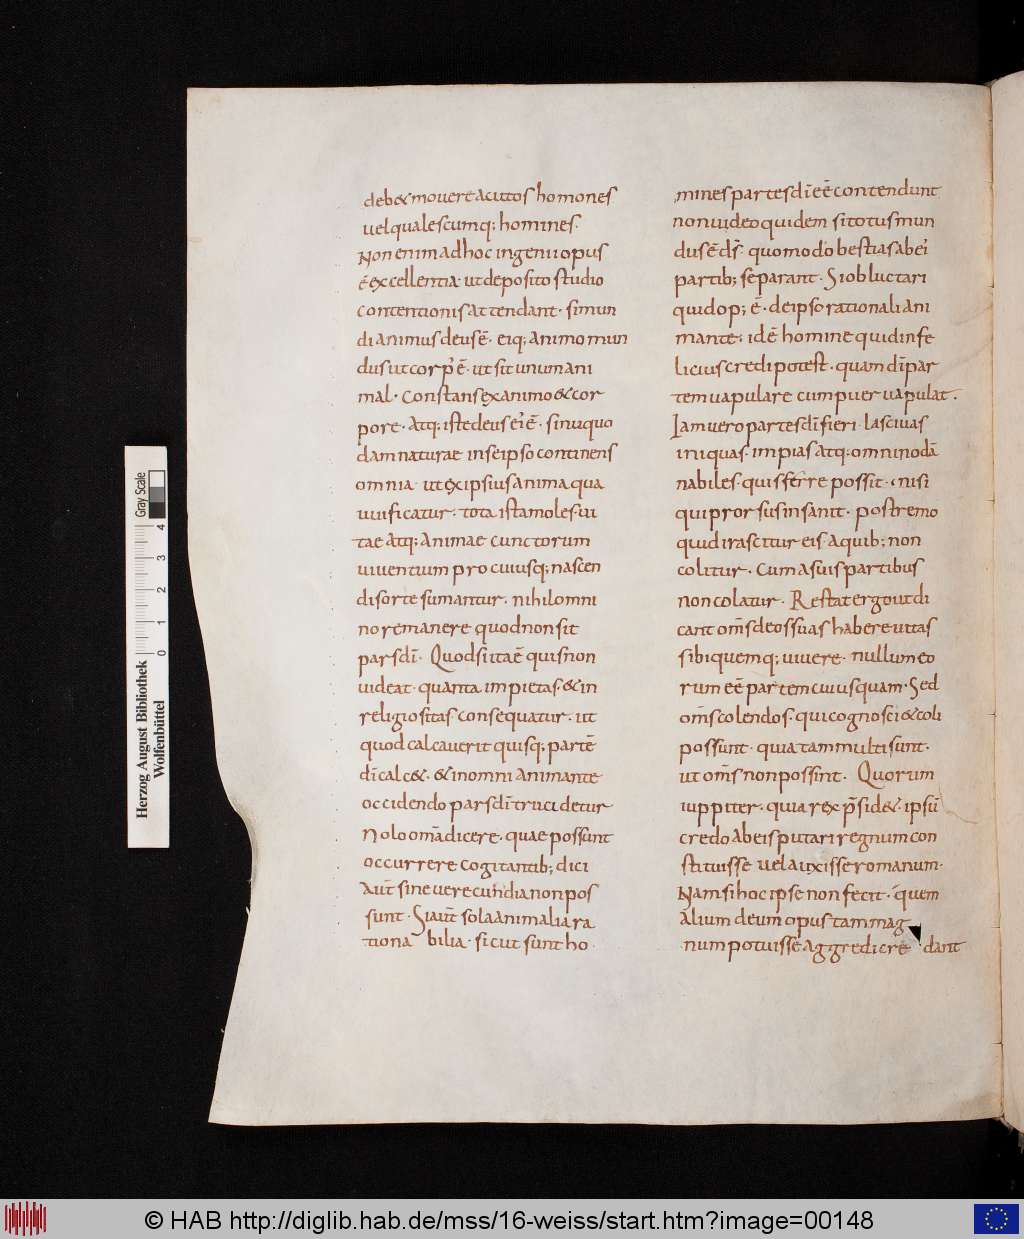 deb&mouere acutos homones
uel qualescumq; homines.
Non enim adhoc ingenii opus
ē excellentia. ut deposito studio
contentionis attendant. simun
di animus deus ē. eiq; animo mun
dus ut corp̄ ē. ut sit unum ani
mal. constans ex animo & cor
pore. atq; iste deus ei̓ ē. sinu quo
dam naturae inseipso continens
omnia ut ex ipsius anima qua
uiuificatur. tota ista moles. ui
tae atq; animae cunctorum
uiuentium pro cuiusq; nascen
di sorte sumantur. nihil omni
no remanere quod non sit
pars dī. Quod si ita ē quis non
uideat. quanta impietas. & in
religiositas consequatur. ut
quod calcauerit quisq; partē
dī calc&. & in omni animante
occidendo pars dī trucidetur
Nolo omā dicere. quae possunt
occurrere cogitantib; dici
aut̄ sine uerecundia non pos
sunt. Si aut̄ sola animalia ra
tiona bilia. sicut sunt ho
mines partes dī eē contendunt
non uideo quidem si totus mun
dus ē dr̄. quomodo bestias abei̓
partib; separant. Si obluctari
quid op; ē. de ipso rationali ani
mante. id ē homine quid infe
licius credi potest. quam dī par
tem uapulare cum puer uapulat.
Iam uero partes dī fieri. lasciuas
iniquas. impias atq; omnino dā
nabiles. quis ferre possit. nisi
qui prorsus insanit. postremo
quid irascitur eis. a quib; non
colitur. cum a suis partibus
non colatur. Restat ergo ut di
cant om̄s deos suas habere uitas
sibi quemq; uiuere. nullum eo
rum eē partem cuiusquam. Sed
om̄s colendos. qui cognosci & coli
possunt. quia tam multi sunt.
ut om̄s non possint. Quorum
iuppiter. quia rex p̄sid&. ipsū
credo ab eis putari regnum con
stituisse uel auxisse romanum.
Nam si hoc ipse non fecit. quem
alium deum opus tam mag
num potuisse aggredi cre dant
Herzog August Bibliothek
Wolfenbüttel
0 1 2 3 4
Gray Scale
© HAB http://diglib.hab.de/mss/16-weiss/start.htm?image=00148